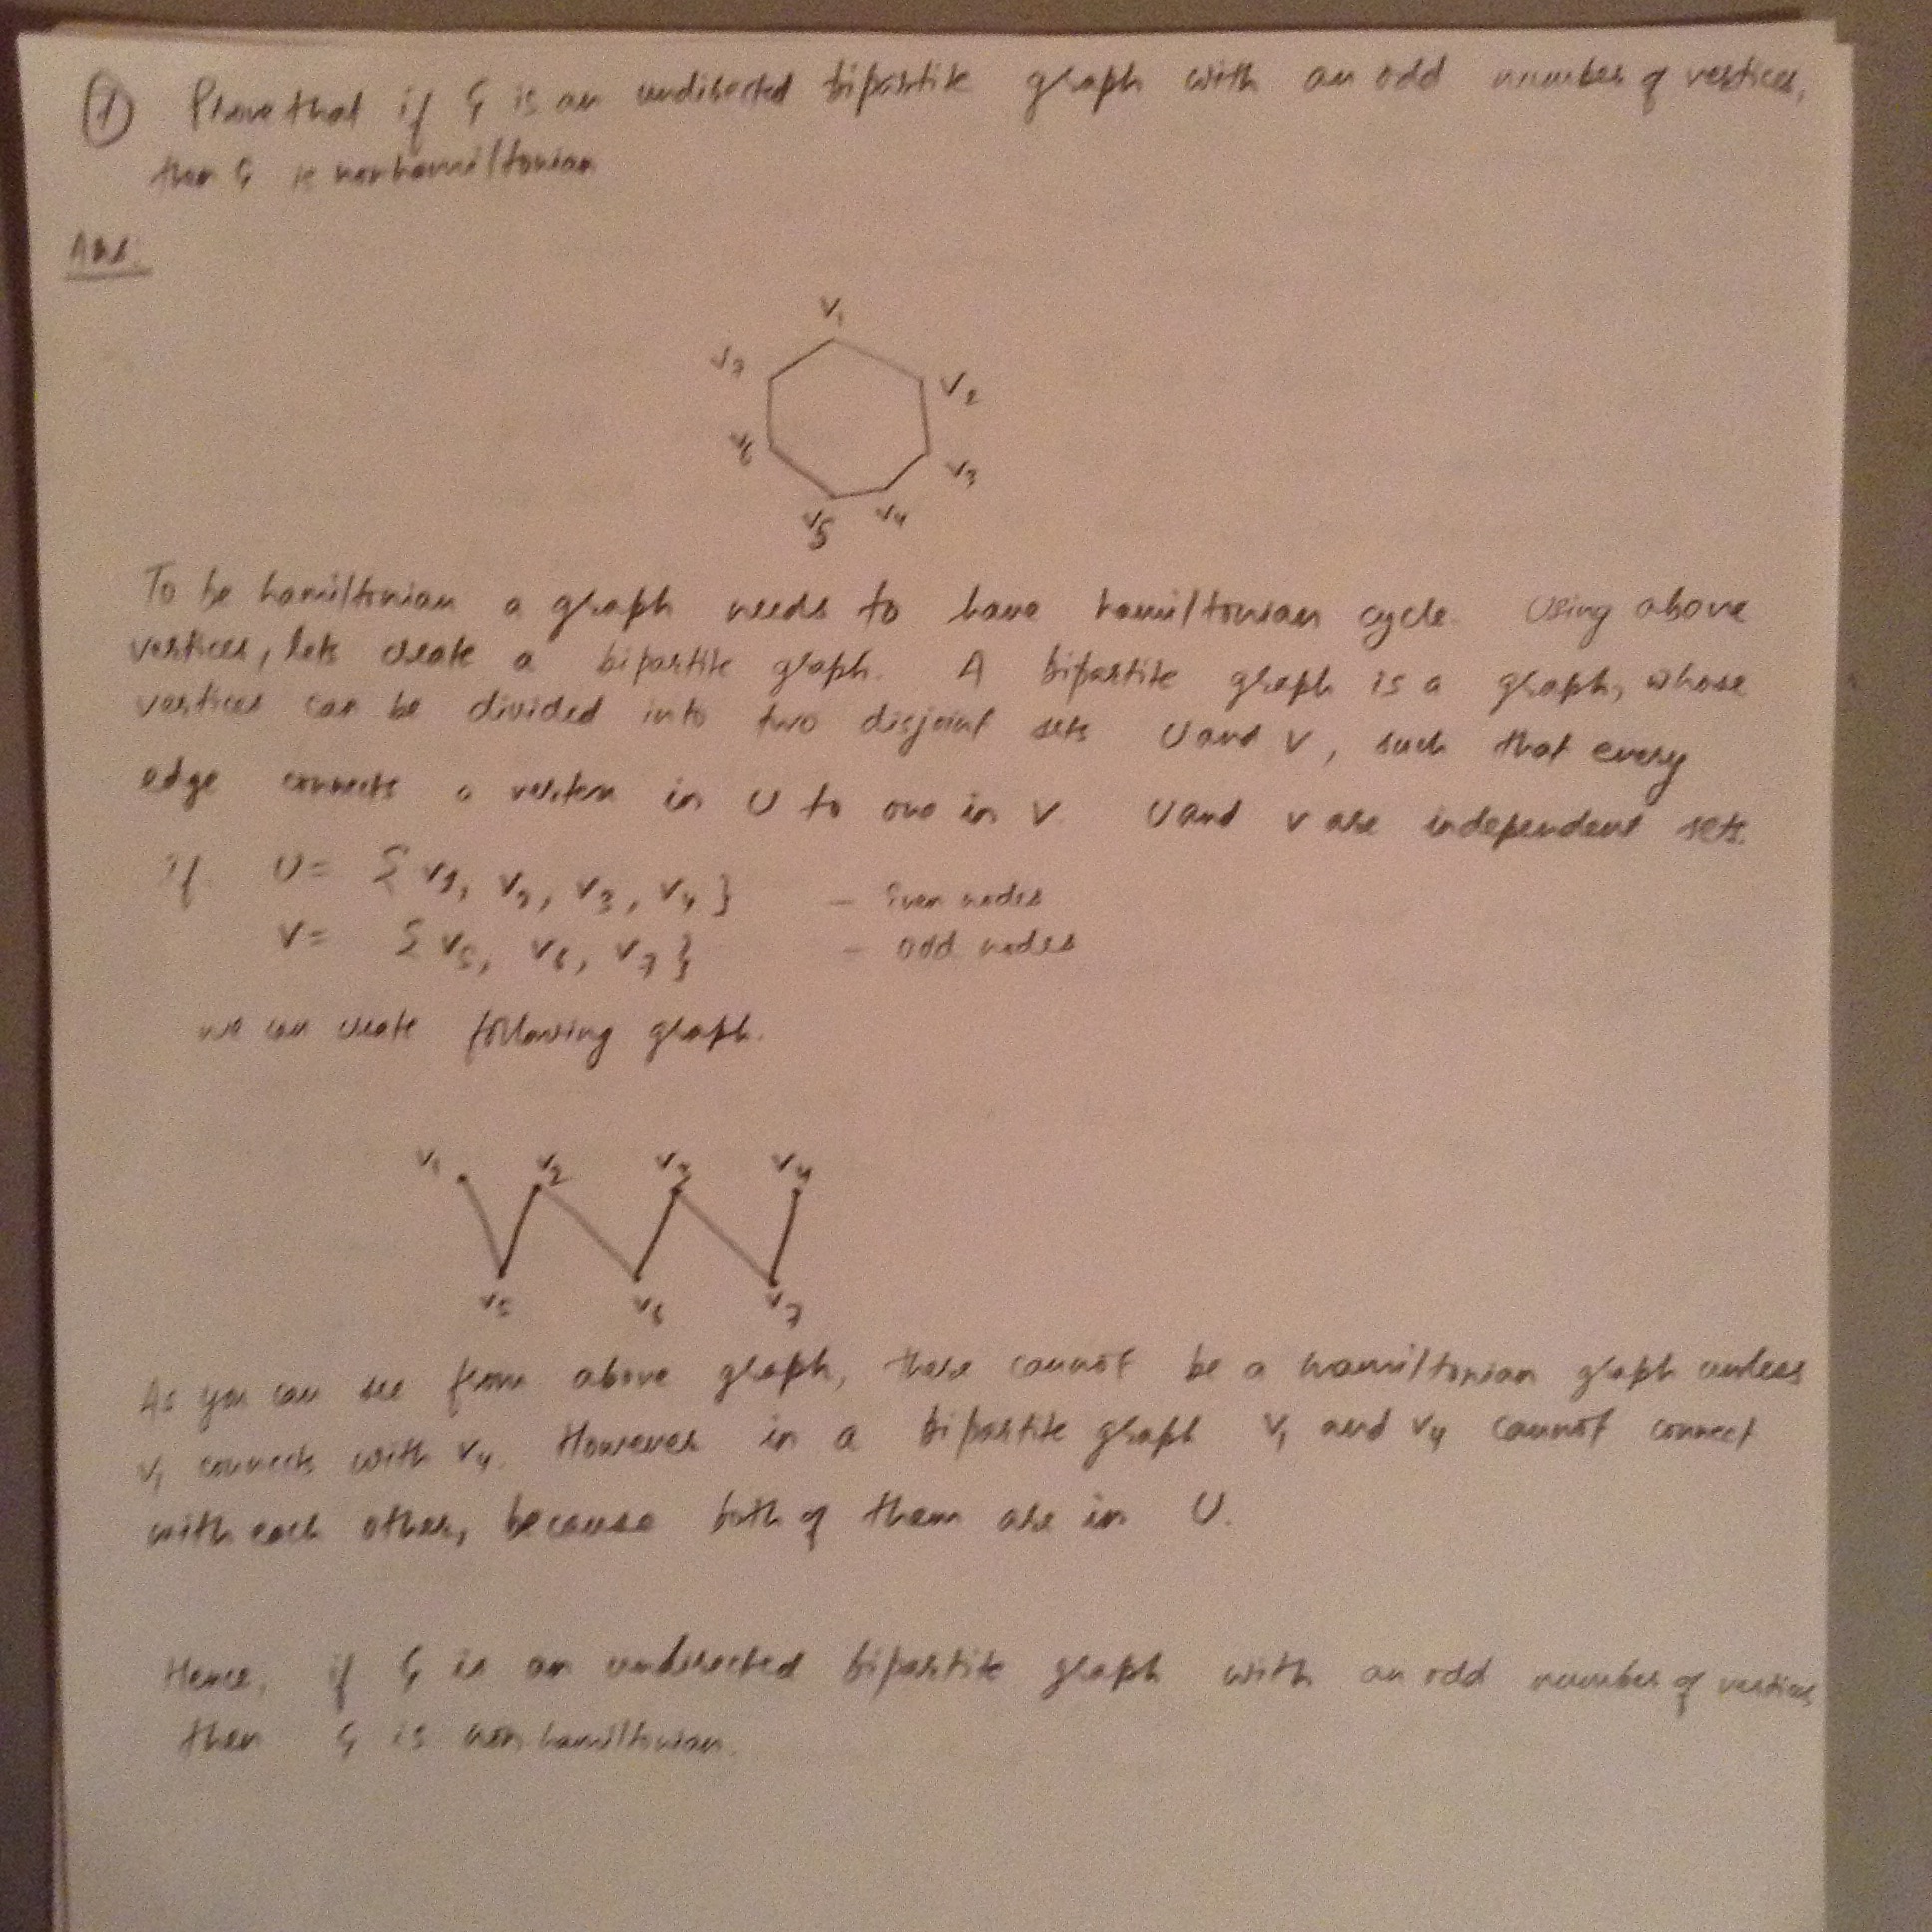 ① Prove that if G is an undirected bipartite graph with an odd number of vertices,
then G is nonhamiltonian
Ans.
V1
V7
V2
V6
V3
V5 V4
To be hamiltonian a graph needs to have hamiltonian cycle. Using above
vertices, lets create a bipartite graph. A bipartite graph is a graph, whose
vertices can be divided into two disjoint sets U and V, such that every
edge connects a vertex in U to one in V. U and V are independent sets.
if U = { V1, V2, V3, V4 } - Even nodes
V = { V5, V6, V7 } - odd nodes
we can create following graph.
V1 V2 V3 V4
V5 V6 V7
As you can see from above graph, there cannot be a hamiltonian graph unless
V1 connects with V4. However in a bipartite graph V1 and V4 cannot connect
with each other, because both of them are in U.
Hence, if G is an undirected bipartite graph with an odd number of vertices
then G is non hamiltonian.